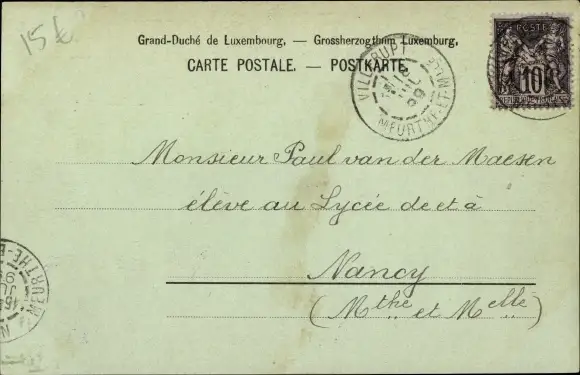 15€
Grand-Duché de Luxembourg. — Grossherzogthum Luxemburg.
CARTE POSTALE. — POSTKARTE
VILLERUPT
MEURTHE-ET-MOS
99
POSTE
10
Monsieur Paul van der Maesen
élève au Lycée de et à
Nancy
(Mthe et Melle)
MEURTHE-E